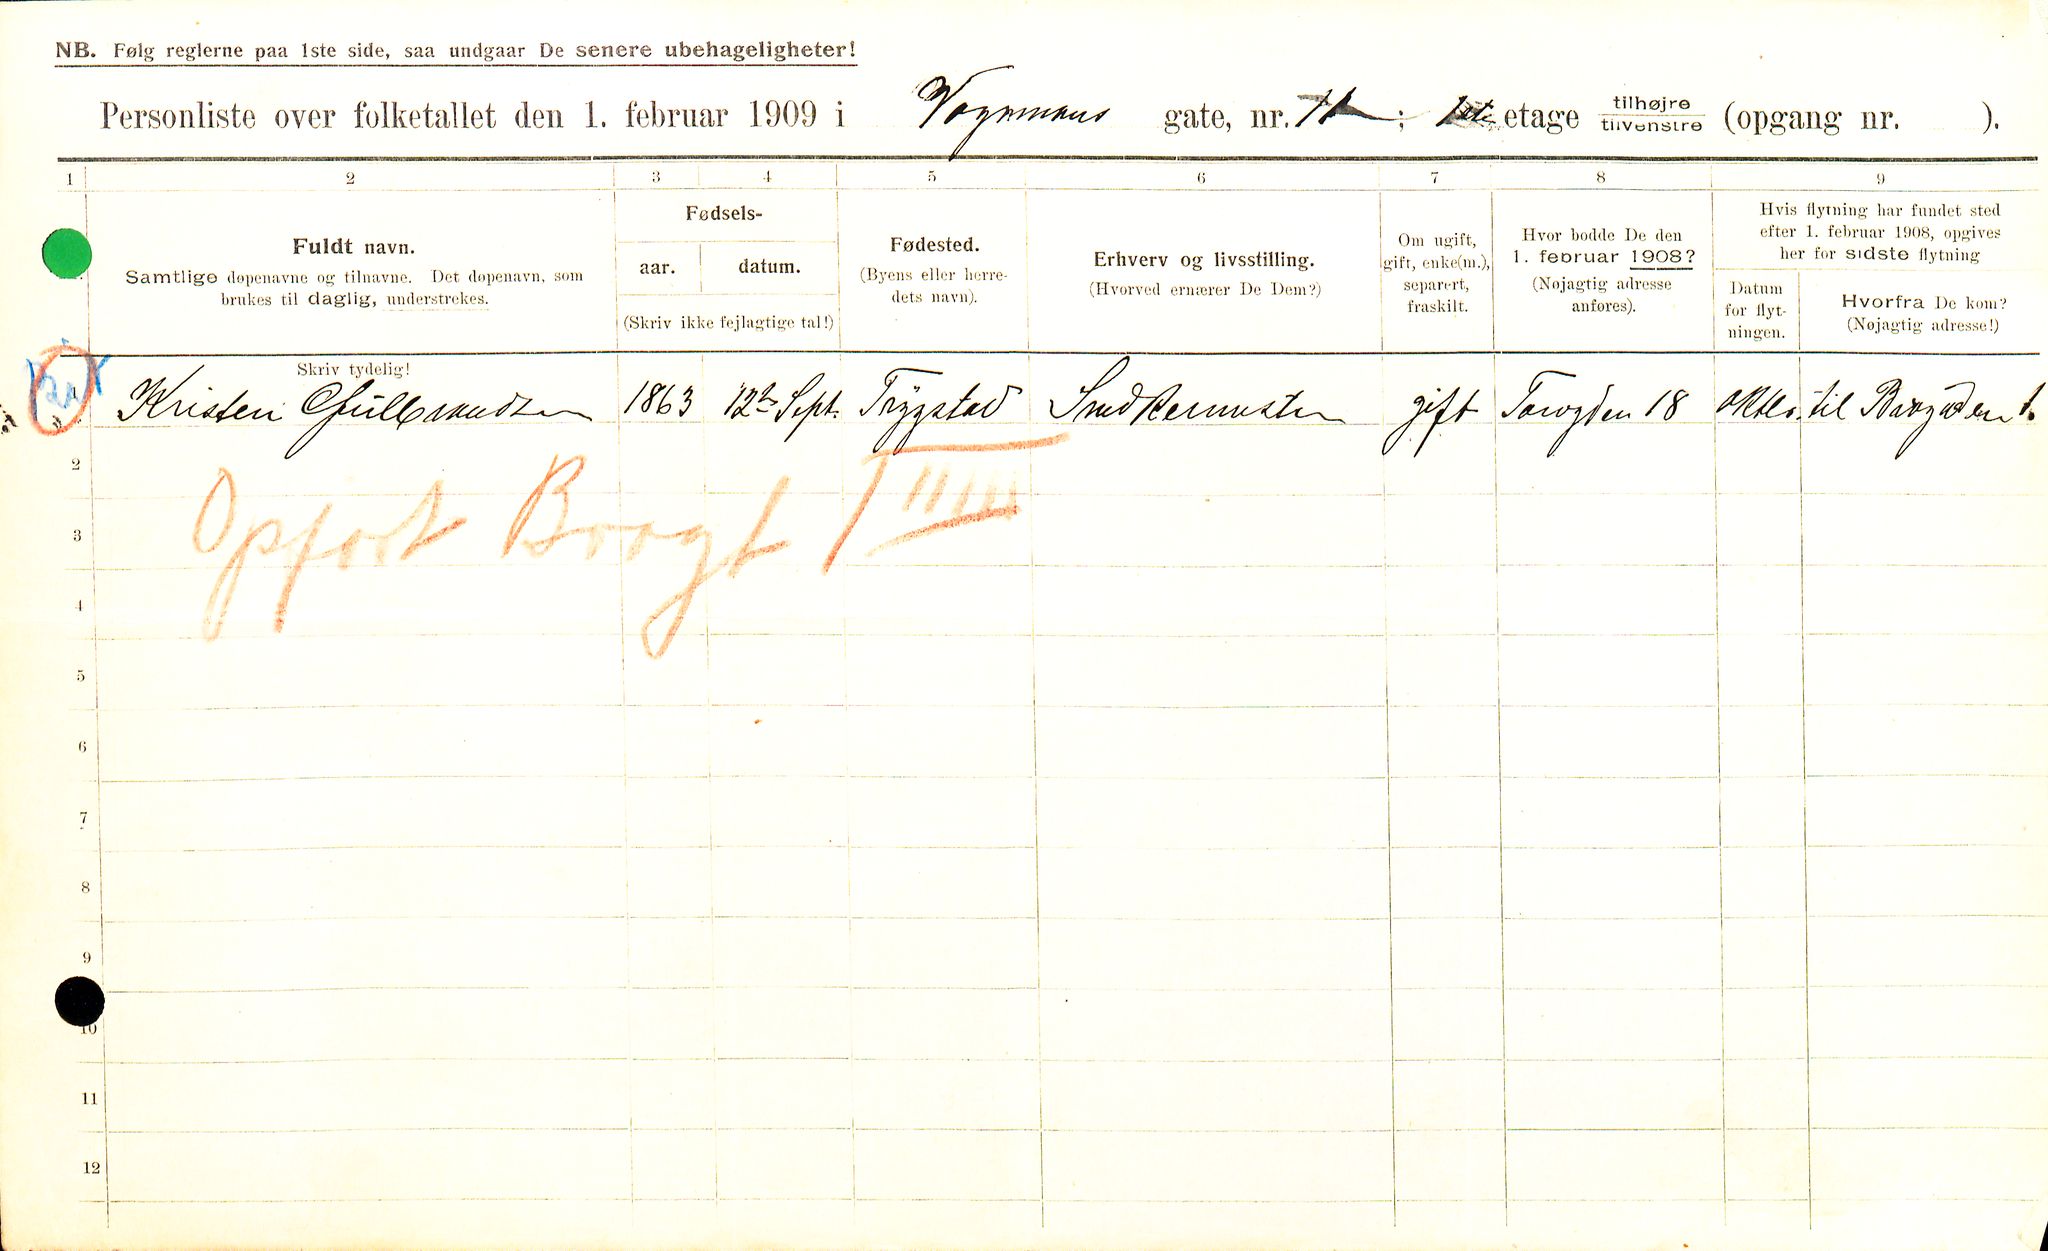 NB. Følg reglerne paa 1ste side, saa undgaar De senere ubehageligheter!
Personliste over folketallet den 1. februar 1909 i Vognmans gate, nr. 11 ; 1ste etage tilhøjre tilvenstre (opgang nr. ).
1 2 3 4 5 6 7 8 9
Fuldt navn.
Samtlige døpenavne og tilnavne. Det døpenavn, som
brukes til daglig, understrekes.
Fødsels-
aar. datum.
(Skriv ikke fejlagtige tal!)
Fødested.
(Byens eller herre-
dets navn).
Erhverv og livsstilling.
(Hvorved ernærer De Dem?)
Om ugift,
gift, enke(m.),
separert,
fraskilt.
Hvor bodde De den
1. februar 1908?
(Nøjagtig adresse
anføres).
Hvis flytning har fundet sted
efter 1. februar 1908, opgives
her for sidste flytning
Datum
for flyt-
ningen.
Hvorfra De kom?
(Nøjagtig adresse!)
Skriv tydelig!
1 Kristen Gulbrandsen 1863 12te Sept. Trygstad Snedkermester gift Torvgden 18 oktbr. til Brogaden 1.
2
Opført Brogt 1 III
3
4
5
6
7
8
9
10
11
12